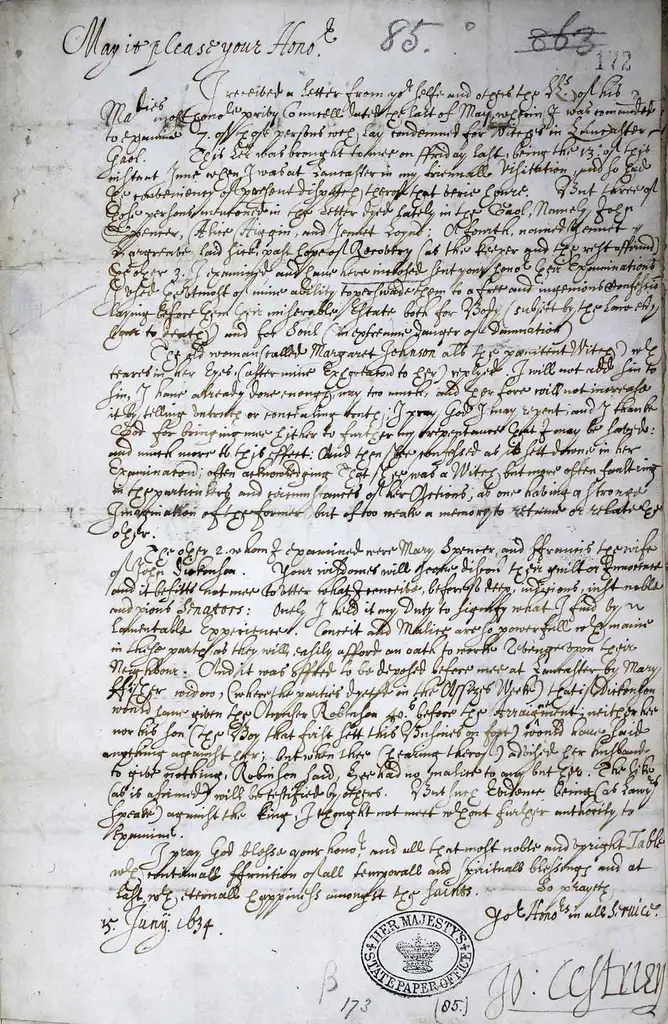 85. 863
172
May it please your Honor.
I received a Letter from yor selfe and others the LLs. of his
Maties most honoble privy Councell dated the last of May, wherin I was comanded
to examine 7. of those persons wch lay condemned for Witches in Lancaster
Gaol. This Lre was brought to mee on ffriday last, being the 13. of this
instant June when I was at Lancaster in my trienniall Visitation, and so had
the conveniency of persons dispatch there that verie houre. But three of
those persons mentioned in the Letter dyed lately in the Gaol, Namely John
Spencer, Alice Higgin, and Jennet Loynd: A fourth, named Jennet
Hargreaves laid sick, past hope of Recovery (as the keeper and the rest affirmd)
The other 3. I examined and have here inclosed sent your honor their Examinations
I used the utmost of mine ability to perswade them to a free and ingenious Confession
laying before them their miserable Estate both for Body (subject by the Law
to death) and for Soul (in extreame danger of Damnation)
The old woman (called Margaret Johnson als the penitent Witch) wth
teares in her Eyes, (after mine Exhortation to her) replyed. I will not add sin to
sin, I have already done enough, nay too much, and therfore will not increase
it by telling untroth or concealing truth; I pray God I may repent; and I thank
God for bringing mee hither to further my repentance that I may be saved:
and much more to this effect: And then she confessed as is sett downe in her
Examination; often acknowledging that she was a Witch but more often faulting
in the particulers and circumstances of her Actions, as one having a strong
Imagination of the former, but of too weake a memory to retaine or relate the
other.
The other 2. whom I examined were Mary Spencer, and ffrancis the wife
of John Dickonson. Your wisdomes will upon their guilt or Innocence
and it befitts not mee to utter what I conceive, before so deep, judicious, just noble
and pious Senators: Onely I held it my duty to signify what I find by
Lamentable Experience. Conceit and Malice are so powerfull wth many
in those parts, as they will easily afford an oath to worke Revenge upon their
Neighbour. And it was offred to be deposed before mee at Lancaster by Mary
ffisher widow, (where the parties in the Assizes Week) that Dickonson
would have given the Accuser Robinson 40s. before the Arraignment; neither hee
nor his son (the Boy that first sett this Busines on foot) would have said
anything against her: but when shee (hearing therof) advised her husband
to give nothing, Robinson said, hee had no malice to any but her. The like
(as is afirmed) will be testified by others. But such Evidence being (as Lawyers
speake) against the king, I thought not meet without further authority to
Examine.
I pray God blesse your honor, and all that most noble and upright Table
wth continuall affluition of all temporall and spirituall blessings and at
last wth eternall happiness amongst the Saints. So prayeth
15. Junij 1634. Yor Honors in all Service.
Jo: Cestrien
HER MAJESTY'S
STATE PAPER OFFICE
173 (85.)